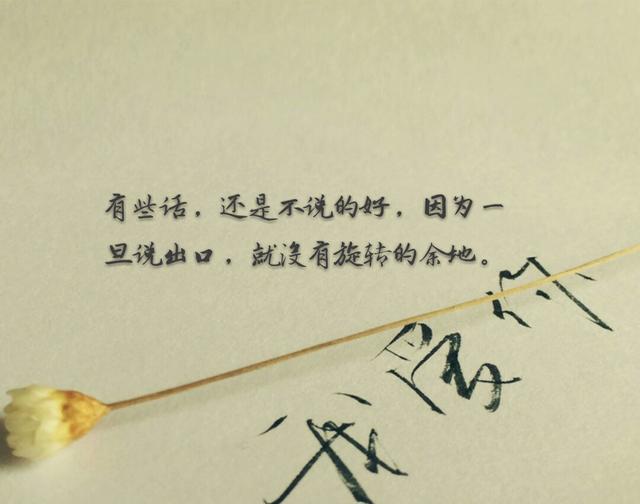 有些话，还是不说的好，因为一
旦说出口，就没有旋转的余地。
我爱你